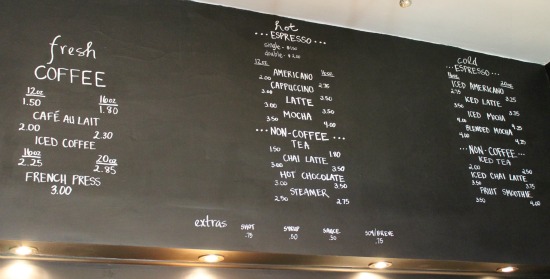 fresh
COFFEE
12oz 16oz
1.50 1.80
CAFÉ AU LAIT
2.00 2.30
ICED COFFEE
16oz 20oz
2.25 2.85
FRENCH PRESS
3.00
hot
...ESPRESSO...
single -
double -
12oz 16oz
AMERICANO
2.00 2.35
CAPPUCCINO
3.00 3.50
LATTE
3.00 3.50
MOCHA
3.50 4.00
...NON-COFFEE...
TEA
1.50 1.80
CHAI LATTE
3.00 3.50
HOT CHOCOLATE
3.00 3.50
STEAMER
2.50 2.75
cold
...ESPRESSO...
16oz 20oz
ICED AMERICANO
2.75 3.25
ICED LATTE
3.50 3.75
ICED MOCHA
4.00 4.25
BLENDED MOCHA
4.00 4.25
...NON-COFFEE...
ICED TEA
2.00 2.50
ICED CHAI LATTE
3.50
FRUIT SMOOTHIE
3.50 4.00
extras
SHOT SYRUP SAUCE SOY/BREVE
.75 .50 .50 .75